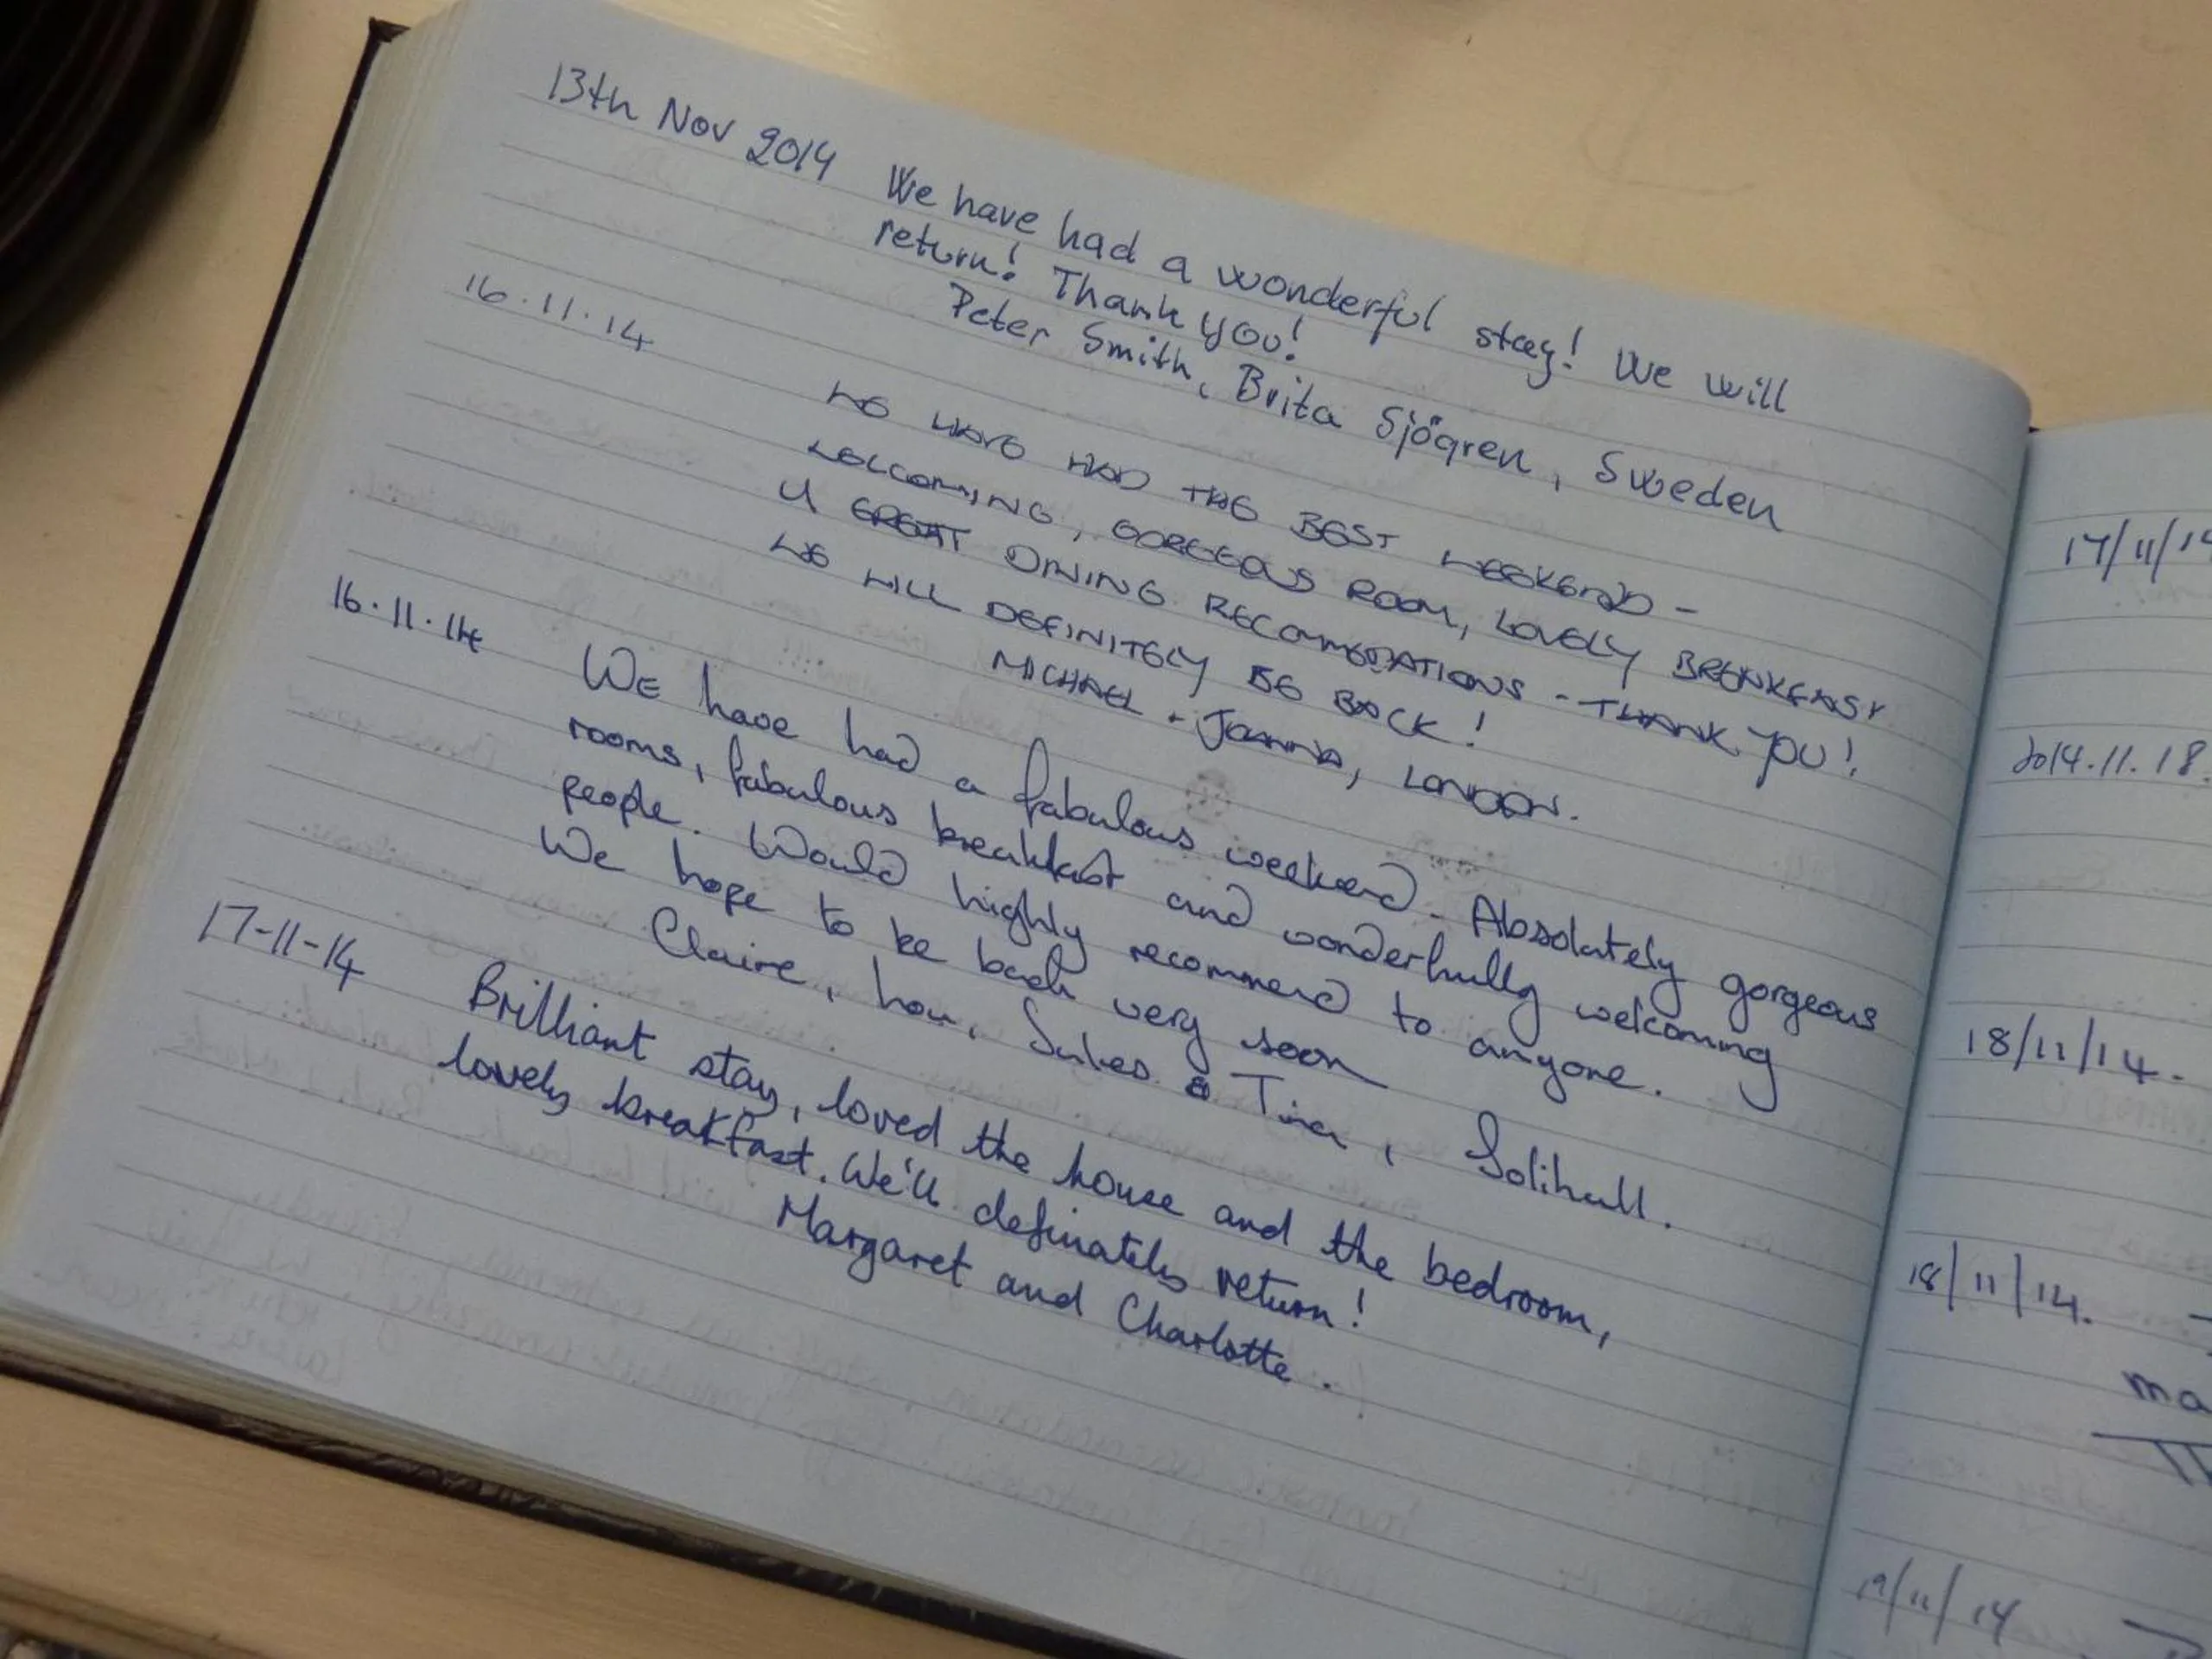 13th Nov 2014 We have had a wonderful stay! We will
return! Thank you!
Peter Smith, Brita Sjögren, Sweden
16.11.14
WE HAVE HAD THE BEST WEEKEND -
WELCOMING, GORGEOUS ROOM, LOVELY BREAKFAST
& GREAT DINING RECOMMEDATIONS - THANK YOU!
WE WILL DEFINITELY BE BACK!
MICHAEL + JOANNA, LONDON.
16.11.14 We have had a fabulous weekend. Absolutely gorgeous
rooms, fabulous breakfast and wonderfully welcoming
people. Would highly recommend to anyone.
We hope to be back very soon
Claire, & Tina, Solihull.
17-11-14 Brilliant stay, loved the house and the bedroom,
lovely breakfast. We'll definately return!
Margaret and Charlotte.
17/11/14
2014.11.18.
18/11/14.
18/11/14.
ma
19/11/14